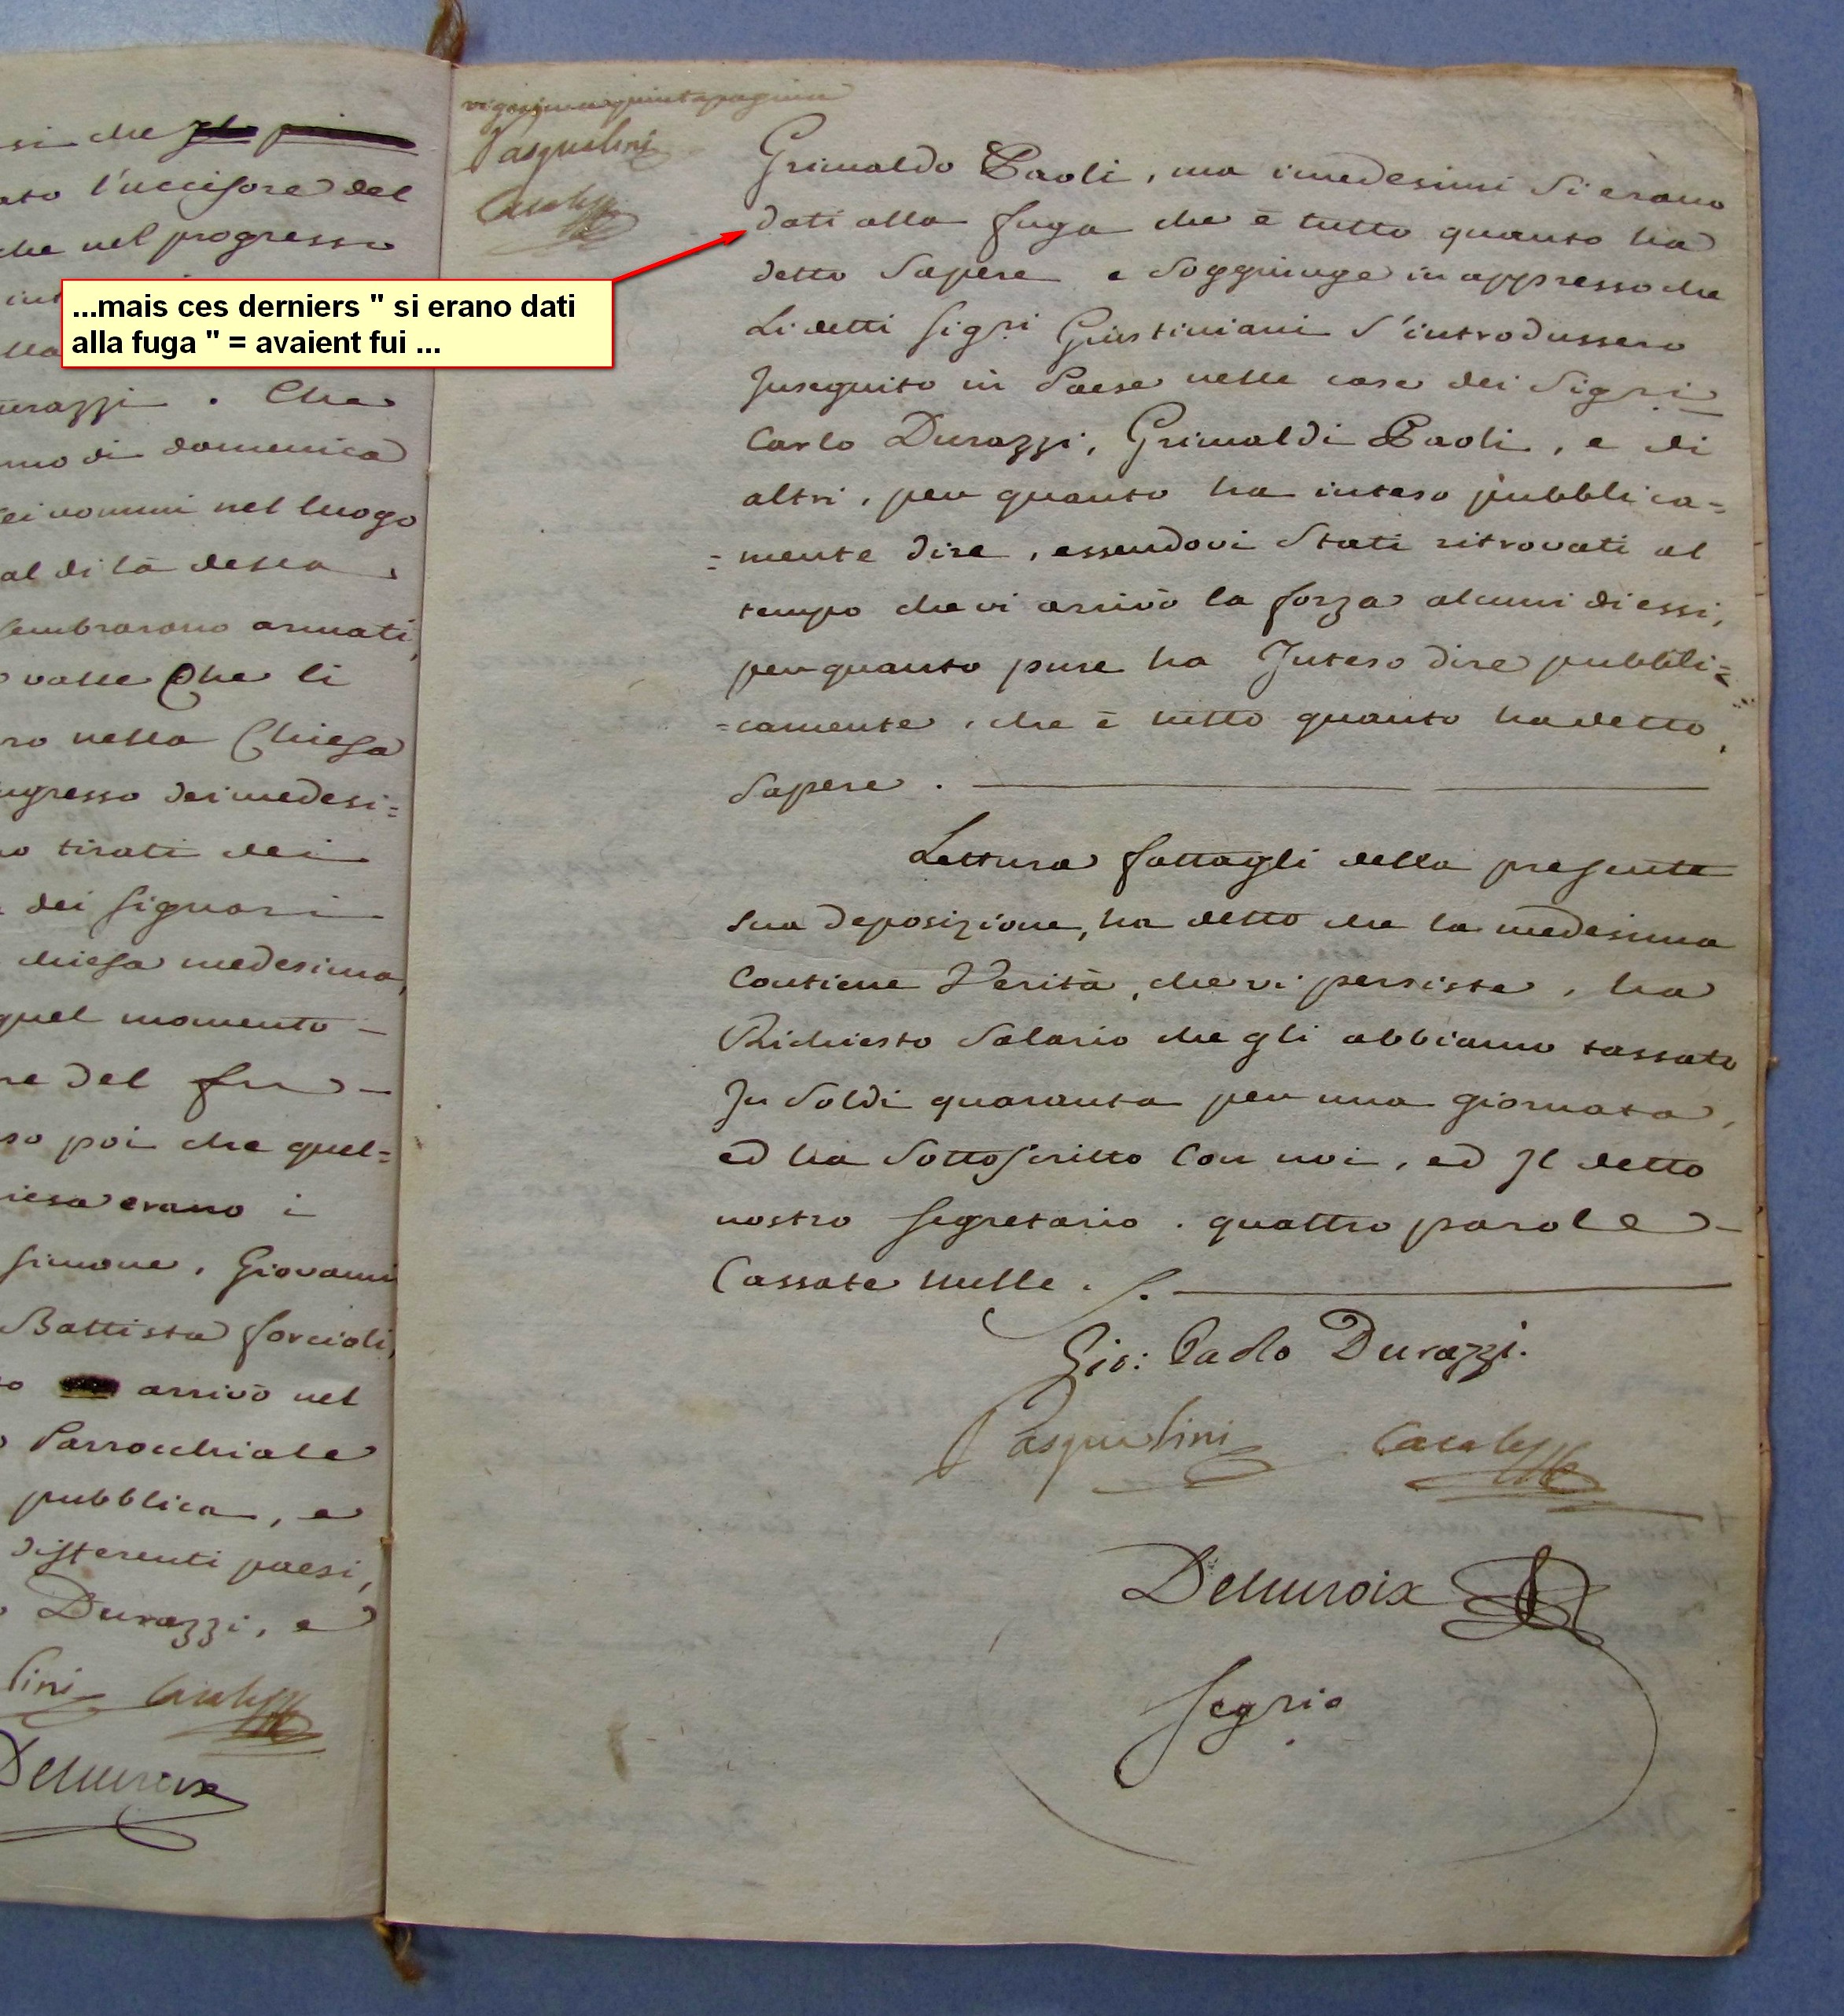 si che
ato l'uccisore del
che nel progresso
int
lla
urazzi . Che
no di domenica
ei uomini nel luogo
al di là della
sembrarono armati,
valle Che li
ro nella Chiesa
ngresso dei medesi=
no tirati dei
dei Signori
chiesa medesima,
quel momento
re del fu
so poi che quel=
iesa erano i
Simone, Giovanni
Battista forcioli,
o arrivò nel
Parrocchiale
pubblica, e
differenti paesi,
Durazzi, e
lini
Delucroix
...mais ces derniers " si erano dati
alla fuga " = avaient fui ...
vigesima quinta pagina
Pasqualini
Grimaldo Paoli, ma i medesimi Si erano
dati alla fuga che è tutto quanto ha
detto Sapere e Soggiunge in appresso che
Li detti Sigri Giustiniani s'introdussero
Inseguito in Paese nelle case dei Sigri
Carlo Durazzi, Grimaldi Paoli, e di
altri, per quanto ha inteso pubblica=
=mente dire, essendovi Stati ritrovati al
tempo che vi arrivò la forza alcuni di essi,
per quanto pure ha Inteso dire pubbli=
=camente, che è tutto quanto ha detto
Sapere.
Lettura fattagli della presente
sua deposizione, ha detto che la medesima
Contiene Verità, che vi persiste, ha
Richiesto Salario che gli abbiamo tassato
In Soldi quaranta per una giornata,
ed ha Sottoscritto Con noi, ed Il detto
nostro Segretario. quattro parole
Cassate nulle.
Gio: Carlo Durazzi.
Pasqualini
Delucroix
Segrio